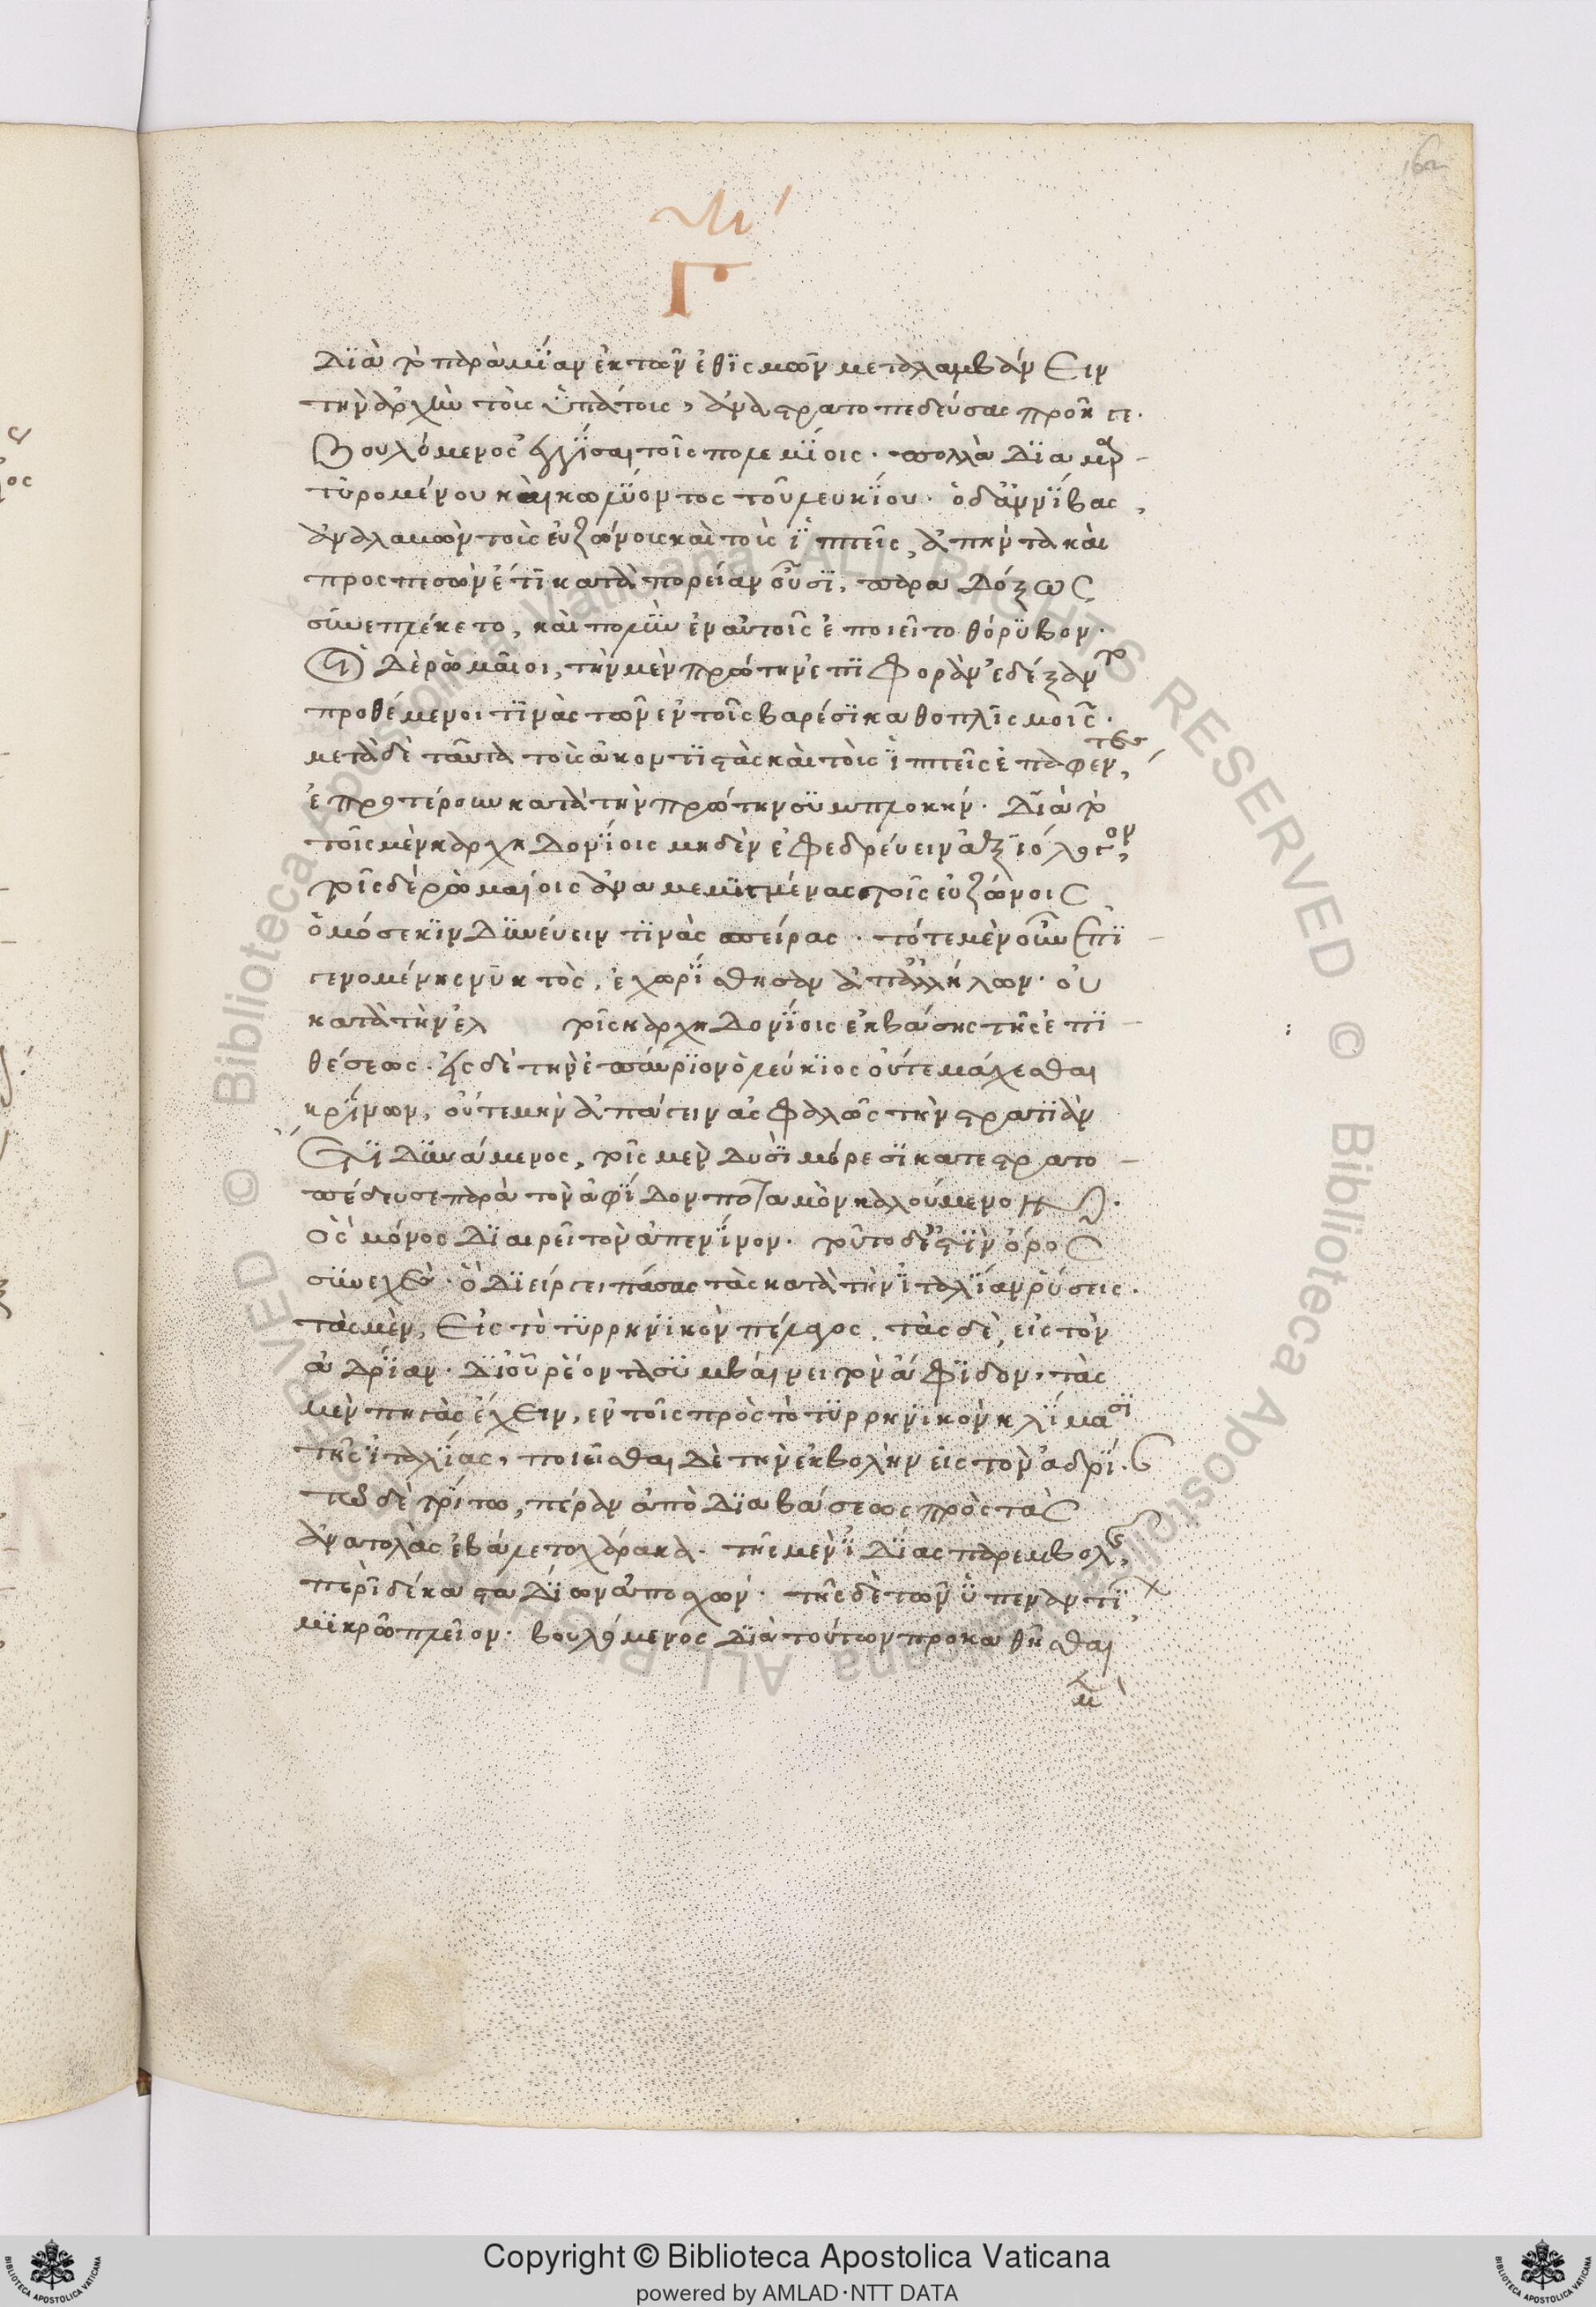 Γ
διὰ τὸ παρὰ μίαν ἐκ τῶν ἐθισμῶν μεταλαμβάνειν
τὴν ἀρχὴν τοὺς ὑπάτους, ἀναστρατοπεδεύσας προῆγε.
βουλόμενος ἐγγίσαι τοῖς πολεμίοις. πολλὰ διαμαρ-
τυρομένου καὶ κωλύοντος τοῦ λευκίου. ὁ δ' ἀννίβας,
ἀναλαβὼν τοὺς εὐζώνους καὶ τοὺς ἱππεῖς, ἀπήντα καὶ
προσπεσὼν ἔτι κατὰ πορείαν οὖσι, παραδόξως
συνεπλέκετο, καὶ πολὺν ἐν αὐτοῖς ἐποιεῖτο θόρυβον.
οἱ δὲ ρωμαῖοι, τὴν μὲν πρώτην ἐπιφορὰν ἐδέξαντο
προθέμενοι τινὰς τῶν ἐν τοῖς βαρέσι καθοπλισμοῖς.
μετὰ δὲ ταῦτα τοὺς ἀκοντιστὰς καὶ τοὺς ἱππεῖς ἐπαφέντες,
ἐπροτέρουν κατὰ τὴν πρώτην συμπλοκήν. διὰ τὸ
τοῖς μὲν καρχηδονίοις μηδὲν ἐφεδρεύειν ἀξιόλογον,
τοῖς δὲ ρωμαίοις ἀναμεμιγμένας τοῖς εὐζώνοις
ὁμόσε κινδυνεύειν τινὰς σπείρας. τότε μὲν οὖν ἐπι-
γενομένης νυκτὸς, ἐχωρίσθησαν ἀπ' ἀλλήλων. οὐ
κατὰ τὴν ἐλ τοῖς καρχηδονίοις ἐκβάσης τῆς ἐπι-
θέσεως. ἐς δὲ τὴν ἐπαύριον ὁ λεύκιος οὔτε μάχεσθαι
κρίνων, οὔτε μὴν ἀπάγειν ἀσφαλῶς τὴν στρατιὰν
ἔτι δυνάμενος, τοῖς μὲν δυσὶ μέρεσι κατεστρατο-
πέδευσε παρὰ τὸν ἀφίδον ποταμὸν καλούμενον.
ὃς μόνος διαιρεῖ τὸν ἀπενίνον. τοῦτο δ' ἔστιν ὄρος
συνεχὲς. ὃ διείργει πάσας τὰς κατὰ τὴν ἰταλίαν ρύσεις.
τὰς μὲν, εἰς τὸ τυρρηνικὸν πέλαγος. τὰς δὲ, εἰς τὸν
ἀδρίαν. δι' οὗ ρέοντα συμβαίνει τὸν ἀύφιδον, τὰς
μὲν πηγὰς ἔχειν, ἐν τοῖς πρὸς τὸ τυρρηνικὸν κλίμασι
τῆς ἰταλίας, ποιεῖσθαι δὲ τὴν ἐκβολὴν εἰς τὸν ἀδρί.
τῷ δὲ τρίτῳ, πέραν ἀπὸ διαβάσεως πρὸς τὰς
ἀνατολὰς ἐβάλετο χάρακα. τῆς μὲν ἰδίας παρεμβολῆς,
περὶ δέκα σταδίων ἀποσχὼν. τῆς δὲ τῶν ὑπεναντί
μικρῷ πλεῖον. βουλόμενος διὰ τούτων προκαθῆσθαι